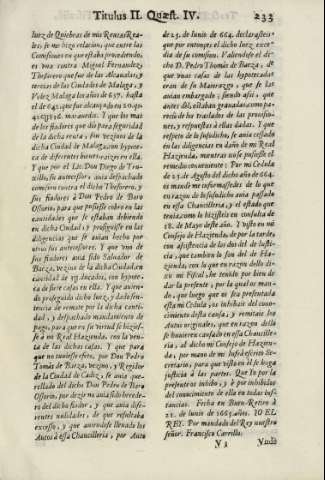 Titulus II. Quæst. IV. 233
Juez de Quiebras de mis Rentas Rea-
les, se me hizo relacion, que entre las
Comissiones en que estaba procediendo,
es vna contra Miguel Fernandez,
Thesorero que fue de las Alcaualas, y
tercias de las Ciudades de Malaga, y
Velez Malaga los años de 637. hasta
el de 641. que fue alcançado en
maravedis. Y que los mas
de los fiadores que diò para seguridad
de la dicha renta, son vezinos de la
dicha Ciudad de Malaga, con hypote-
ca de diferentes bienes raizes en ella.
Y que por el Lic. Don Diego de Tru-
xillo, su antecessor, auia despachado
comission contra el dicho Thesorero, y
sus fiadores à Don Pedro de Baro
Ossorio, para que pusiesse cobro en las
cantidades que se estaban debiendo
en dicha Ciudad, y prosiguiesse en las
diligencias que se auian hecho por
sus antecessores. Y que vno de
sus fiadores auia sido Salvador de
Baeza, vezino de la dicha Ciudad, en
cantidad de ducados, con hypote-
ca de siete casas en ella. Y que auien-
do proseguido dicho Juez, y dada sen-
tencia de remate por la dicha canti-
dad, y despachado mandamiento de
pago, para que en su virtud se hizies-
se à mi Real Hazienda, con la ven-
ta de las dichas casas. Y que para
que no tuviesse efeto, por Don Pedro
Tomàs de Baeza, vezino, y Regidor
de la Ciudad de Cadiz, se auia que-
rellado del dicho Don Pedro de Baro
Ossorio, por dezir no auia sido herede-
ro del dicho fiador, y que auia dife-
rentes nulidades, de que resultaba
excesso, y que auiendose lleuado los
Autos à essa Chancilleria, por Auto
de 23. de Junio de 664. declarasteis
que por entonces el dicho Juez exce-
dia de su comission. Y atendiendo el di-
cho D. Pedro Thomàs de Baeza, de
que vnas casas de las hypotecadas
eran de su Mayorazgo, y que se las
auian embargado; siendo assi, que
antes dèl, estaban grauadas, como pa-
recia de los traslados de las prouisio-
nes, y respuestas à ellas dadas. Y que
respeto de lo susodicho, se auia cessado
en las diligencias en daño de mi Real
Hazienda, mientras no se pusiesse el
remedio conveniente: Por mi Cedula
de 25. de Agosto del dicho año de 664.
os mandè me informassedes de lo que
en razon de lo susodicho auia passado
en essa Chancilleria, y el estado que
tenia, como lo hizisteis en consulta de
18. de Mayo deste año. Y visto en mi
Consejo de Hazienda, de por la tarde,
con assistencia de los dos del de Justi-
cia, que tambien lo son del de Ha-
zienda, con lo que en razon dello di-
xo mi Fiscal, he tenido por bien de
dar la presente, por la qual os man-
do, que luego que os sea presentada
esta mi Cedula, os inhibais del cono-
cimiento desta causa, y remitais los
Autos originales, que en razon della
se huuieren causado en essa Chancille-
ria, al dicho mi Consejo de Hazien-
da, por mano de mi infrascrito Se-
cretario, para que vistos en èl se haga
justicia à las partes. Que Yo por la
presente os inhibo, y è por inhibidos
del conocimiento de ella en todas ins-
tancias. Fecha en Buen-Retiro à
22. de Junio de 1665. años. YO EL
REY. Por mandado del Rey nuestro
señor. Francisco Carrillo.